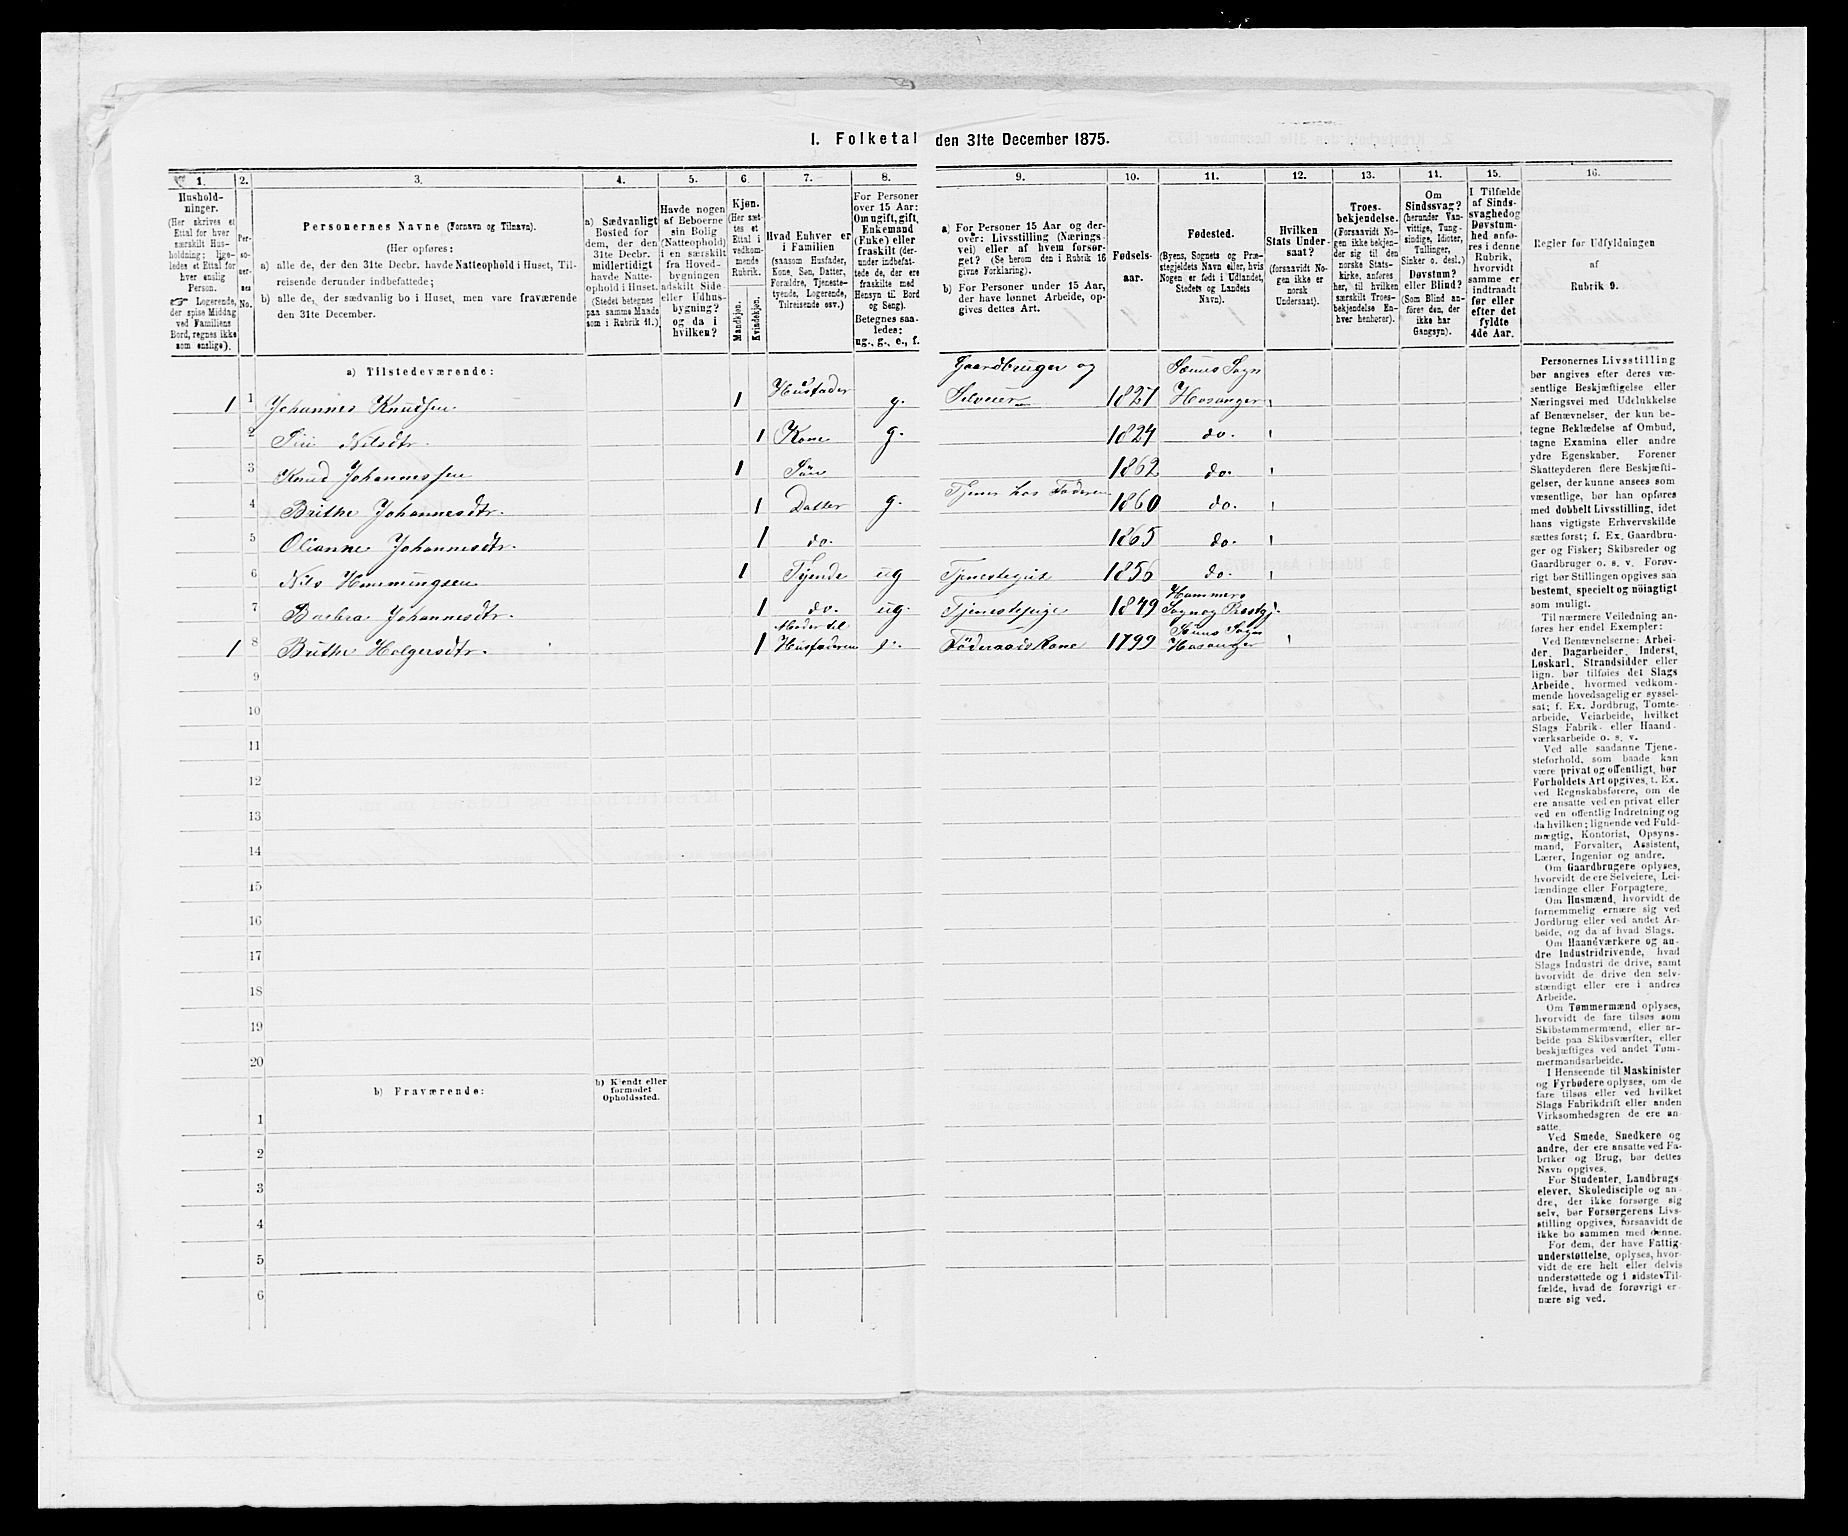 I. Folketal den 31te December 1875.
1. 2. 3. 4. 5. 6. 7. 8. 9. 10. 11. 12. 13. 14. 15. 16.
Hushold-
ninger.
(Her skrives et
Ettal for hver
særskilt Hus-
holdning; lige-
ledes et Ettal for
hver enslig
Person.
☞ Logerende,
der spise Middag
ved Familiens
Bord, regnes ikke
som enslige).
Per-
so-
ner-
nes
No.
Personernes Navne (Fornavn og Tilnavn).
(Her opføres:
a) alle de, der den 31te Decbr. havde Natteophold i Huset, Til-
reisende derunder indbefattede;
b) alle de, der sædvanlig bo i Huset, men vare fraværende
den 31te December.
a) Sædvanligt
Bosted for
dem, der den
31te Decbr.
midlertidigt
havde Natte-
ophold i Huset.
(Stedet betegnes
paa samme Maade
som i Rubrik 11.)
Havde nogen
af Beboerne
sin Bolig
(Natteophold)
i en særskilt
fra Hoved-
bygningen
adskilt Side-
eller Udhus-
bygning?
og da i
hvilken?
Kjøn.
(Her sæt-
tes et
Ettal i
vedkom-
mende
Rubrik.
Mandkjøn.
Kvindekjøn.
Hvad Enhver er
i Familien
(saasom Husfader,
Kone, Søn, Datter,
Forældre, Tjeneste-
tyende, Logerende,
Tilreisende osv.)
For Personer
over 15 Aar:
Om ugift, gift,
Enkemand
(Enke) eller
fraskilt (der-
under indbefat-
tede de, der ere
fraskilte med
Hensyn til Bord
og Seng).
Betegnes saa-
ledes:
ug., g., e., f.
a) For Personer 15 Aar og der-
over: Livsstilling (Nærings-
vei) eller af hvem forsør-
get? (Se herom den i Rubrik 16
givne Forklaring).
b) For Personer under 15 Aar,
der have lønnet Arbeide, op-
gives dettes Art.
Fødsels-
aar.
Fødested.
(Byens, Sognets og Præ-
stegjeldets Navn eller, hvis
Nogen er født i Udlandet,
Stedets og Landets
Navn).
Hvilken
Stats Under-
saat?
(forsaavidt No-
gen ikke er
norsk
Undersaat).
Troes-
bekjendelse.
(Forsaavidt No-
gen ikke bekjen-
der sig til den
norske Stats-
kirke, anføres
her, til hvilken
særskilt Troes-
bekjendelse En-
hver henhører).
Om
Sindssvag?
(herunder Van-
vittige, Tung-
sindige, Idioter,
Tullinger,
Sinker o. desl.)
Døvstum?
eller Blind?
(Som Blind an-
føres den, der
ikke har
Gangsyn).
I Tilfælde
af Sinds-
svaghed og
Døvstum-
hed anfø-
res i denne
Rubrik,
hvorvidt
samme er
indtraadt
før eller
efter det
fyldte
4de Aar.
Regler for Udfyldningen
af
Rubrik 9.
a) Tilstedeværende:
1 1 Johannes Knudsen 1 Husfader g. Gaardbruger og Selveier 1821 Sæms Sogn Hosanger
2 Siri Nilsdtr. 1 Kone g. 1824 do.
3 Knud Johannessen 1 Søn 1862 do.
4 Brithe Johannesdtr. 1 Datter g. Tjener hos Faderen 1860 do.
5 Olianne Johannesdtr. 1 do. 1865 do.
6 Nils Hemmingsen 1 Tyende ug Tjenestegut 1856 do.
7 Barbra Johannesdtr. 1 do. ug. Tjenestepige 1849 Hammers Sogn og Prestgj.
1 8 Brithe Holgersdtr. 1 Moder til Husfaderen e. Föderaads Kone 1799 Sæms Sogn Hosanger
9
10
11
12
13
14
15
16
17
18
19
20
b) Fraværende:
b) Kjendt eller
formodet
Opholdssted.
1
2
3
4
5
6
Personernes Livsstilling
bør angives efter deres væ-
sentlige Beskjæftigelse eller
Næringsvei med Udelukkelse
af Benævnelser, der kun be-
tegne Beklædelse af Ombud,
tagne Examina eller andre
ydre Egenskaber. Forener
Skatteyderen flere Beskjæfti-
gelser, der kunne ansees som
væsentlige, bør han opføres
med dobbelt Livsstilling, idet
hans vigtigste Erhvervskilde
sættes først; f. Ex. Gaardbru-
ger og Fisker; Skibsreder og
Gaardbruger o. s. v. Forøv-
rigt bør Stillingen opgives saa
bestemt, specielt og nøiagtigt
som muligt.
Til nærmere Veiledning an-
føres her endel Exempler:
Ved Benævnelserne: Arbei-
der, Dagarbeider, Inderst,
Løskarl, Strandsidder eller
lign. bør tilføies det Slags
Arbeide, hvormed vedkom-
mende hovedsagelig er syssel-
sat; f. Ex. Jordbrug, Tomte-
arbeide, Veiarbeide, hvilket
Slags Fabrik- eller Haand-
værksarbeide o. s. v.
Ved alle saadanne Tjene-
steforhold, som baade kan
være privat og offentligt, bør
Forholdets Art opgives, t. Ex.
ved Regnskabsførere, om de
ere ansatte ved en privat eller
ved en offentlig Indretning og
da hvilken; lignende ved Fuld-
mægtig, Kontorist, Opsyns-
mand, Forvalter, Assistent,
Lærer, Ingeniør og andre.
Om Gaardbrugere oplyses,
hvorvidt de ere Selveiere, Lei-
lændinge eller Forpagtere.
Om Husmænd, hvorvidt de
fornemmelig ernære sig ved
Jordbrug eller ved andet Ar-
beide, og da af hvad Slags.
Om Haandværkere og an-
dre Industridrivende, hvad
Slags Industri de drive, samt
hvorvidt de drive den selv-
stændigt eller ere i andres
Arbeide.
Om Tømmermænd oplyses,
hvorvidt de fare tilsøs som
Skibstømmermænd, eller ar-
beide paa Skibsværfter, eller
beskjæftiges ved andet Tøm-
mermandsarbeide.
I Henseende til Maskinister
og Fyrbødere oplyses, om de
fare tilsøs eller ved hvilket
Slags Fabrikdrift eller anden
Virksomhedsgren de ere an-
satte.
Ved Smede, Snedkere og
andre, der ere ansatte ved Fa-
briker og Brug, bør dettes
Navn opgives.
For Studenter, Landbrugs-
elever, Skoledisciple og an-
dre, der ikke forsørge sig
selv, bør Forsørgerens Livs-
stilling opgives, forsaavidt de
ikke bo sammen med denne.
For dem, der have Fattig-
understøttelse, oplyses, hvor-
vidt de ere helt eller delvis
understøttede og i sidste Til-
fælde, hvad de forøvrigt er-
nære sig ved.